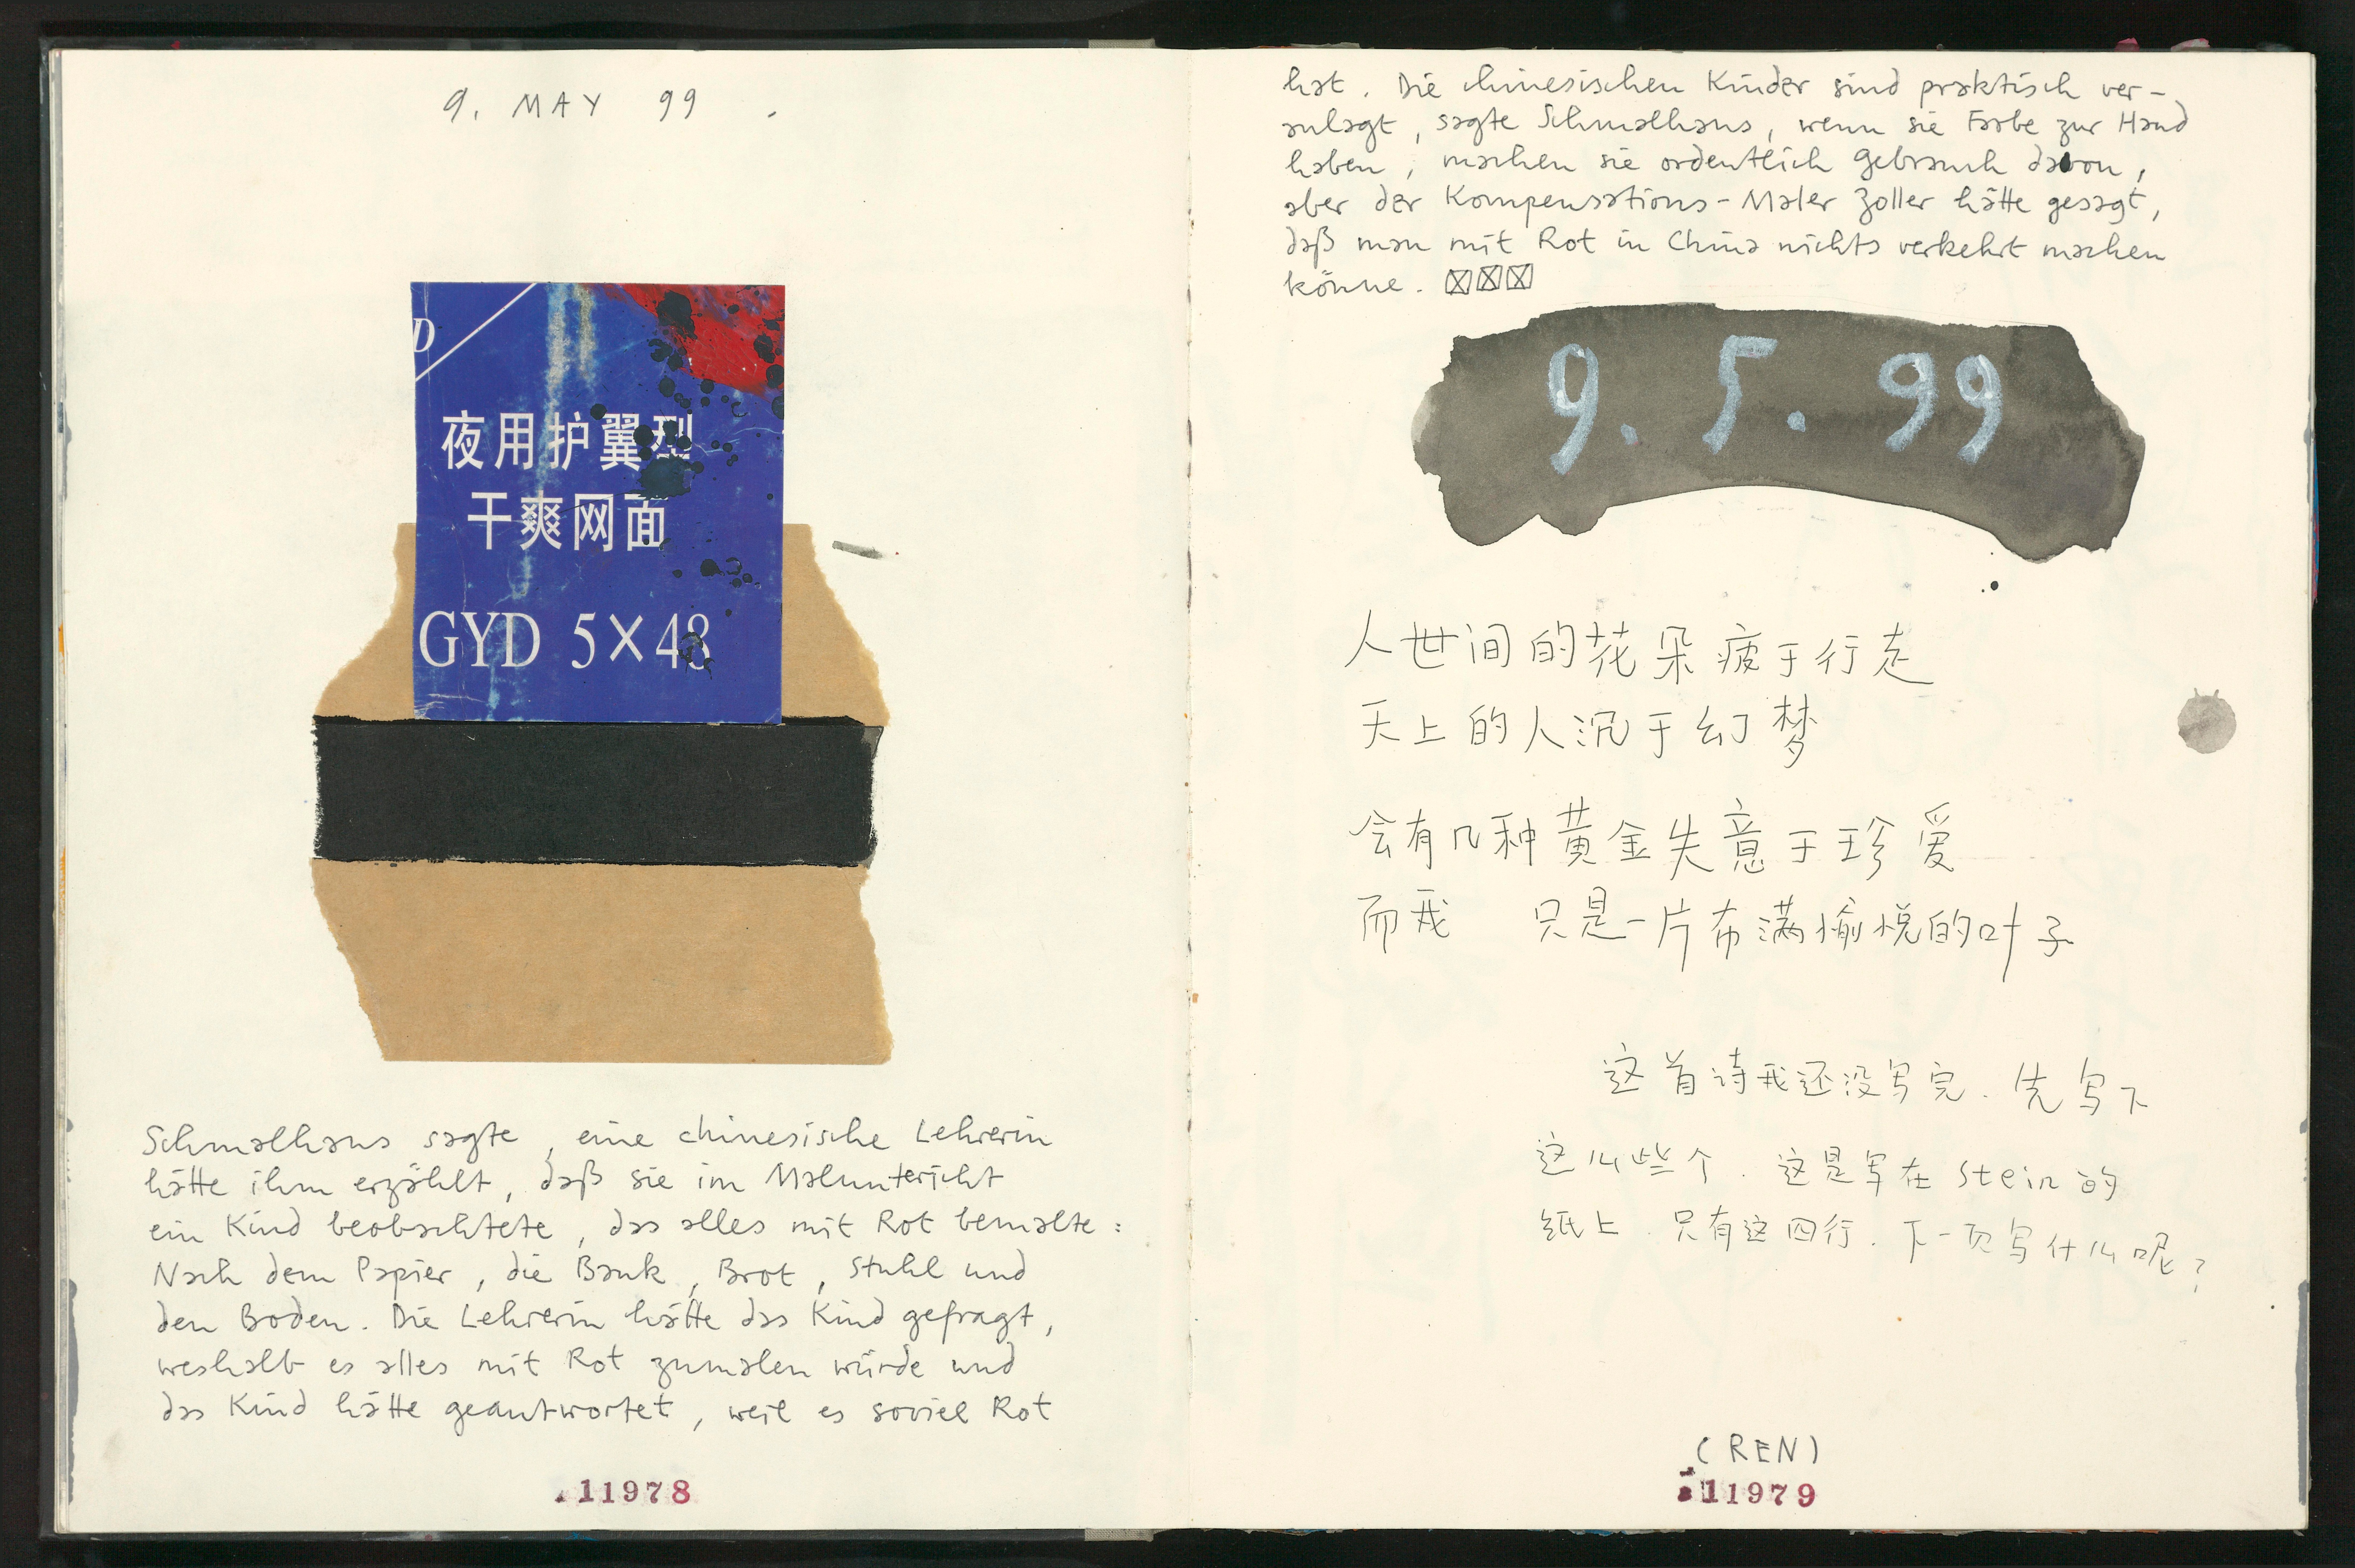 9. MAY 99.
D
夜用护翼型
干爽网面
GYD 5×48
Schmalhans sagte, eine chinesische Lehrerin
hätte ihm erzählt, daß sie im Malunterricht
ein Kind beobachtete, das alles mit Rot bemalte:
Nach dem Papier, die Bank, Brot, Stuhl und
den Boden. Die Lehrerin hätte das Kind gefragt,
weshalb es alles mit Rot zumalen würde und
das Kind hätte geantwortet, weil es soviel Rot
11978
hat. Die chinesischen Kinder sind praktisch ver-
anlagt, sagte Schmalhans, wenn sie Farbe zur Hand
haben, machen sie ordentlich Gebrauch davon,
aber der Kompensations-Maler Zoller hätte gesagt,
daß man mit Rot in China nichts verkehrt machen
könne.
9. 5. 99
人世间的花朵疲于行走
天上的人沉于幻梦
会有几种黄金失意于珍爱
而我 只是一片布满愉悦的叶子
这首诗我还没写完.先写下
这么些个.这是写在Stein的
纸上.只有这四行.下一页写什么呢?
(REN)
11979